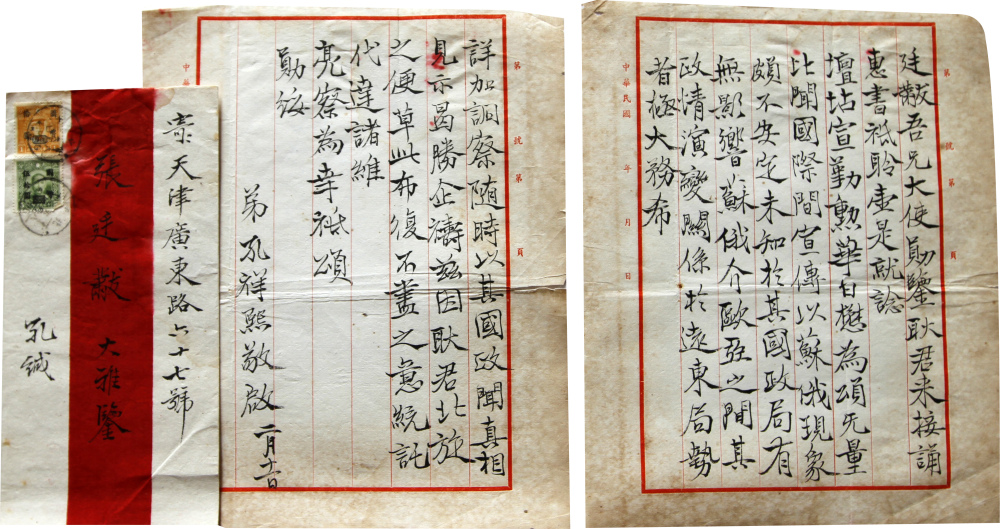 廷黻吾兄大使勛鑒耿君来接誦
惠書祇聆壹是就諗
壇坫宣勤勲華日懋為頌无量
比聞國際間宣傳以蘇俄現象
頗不安定未知於其國政局有
無影響蘇俄介歐亞之間其
政情演變關係於遠東局勢
者極大務希
詳加詷察随時以其國政聞真相
見示曷勝企禱茲因耿君北旋
之便草此布復不盡之意統託
代達諸維
亮察為幸祇頌
勛綏
弟孔祥熙敬啟 二月十二日
中華民國 年 月 日
第 號 第 頁
中華
第 號 第 頁
寄天津廣東路六十七號
張廷黻大雅鑒
孔緘